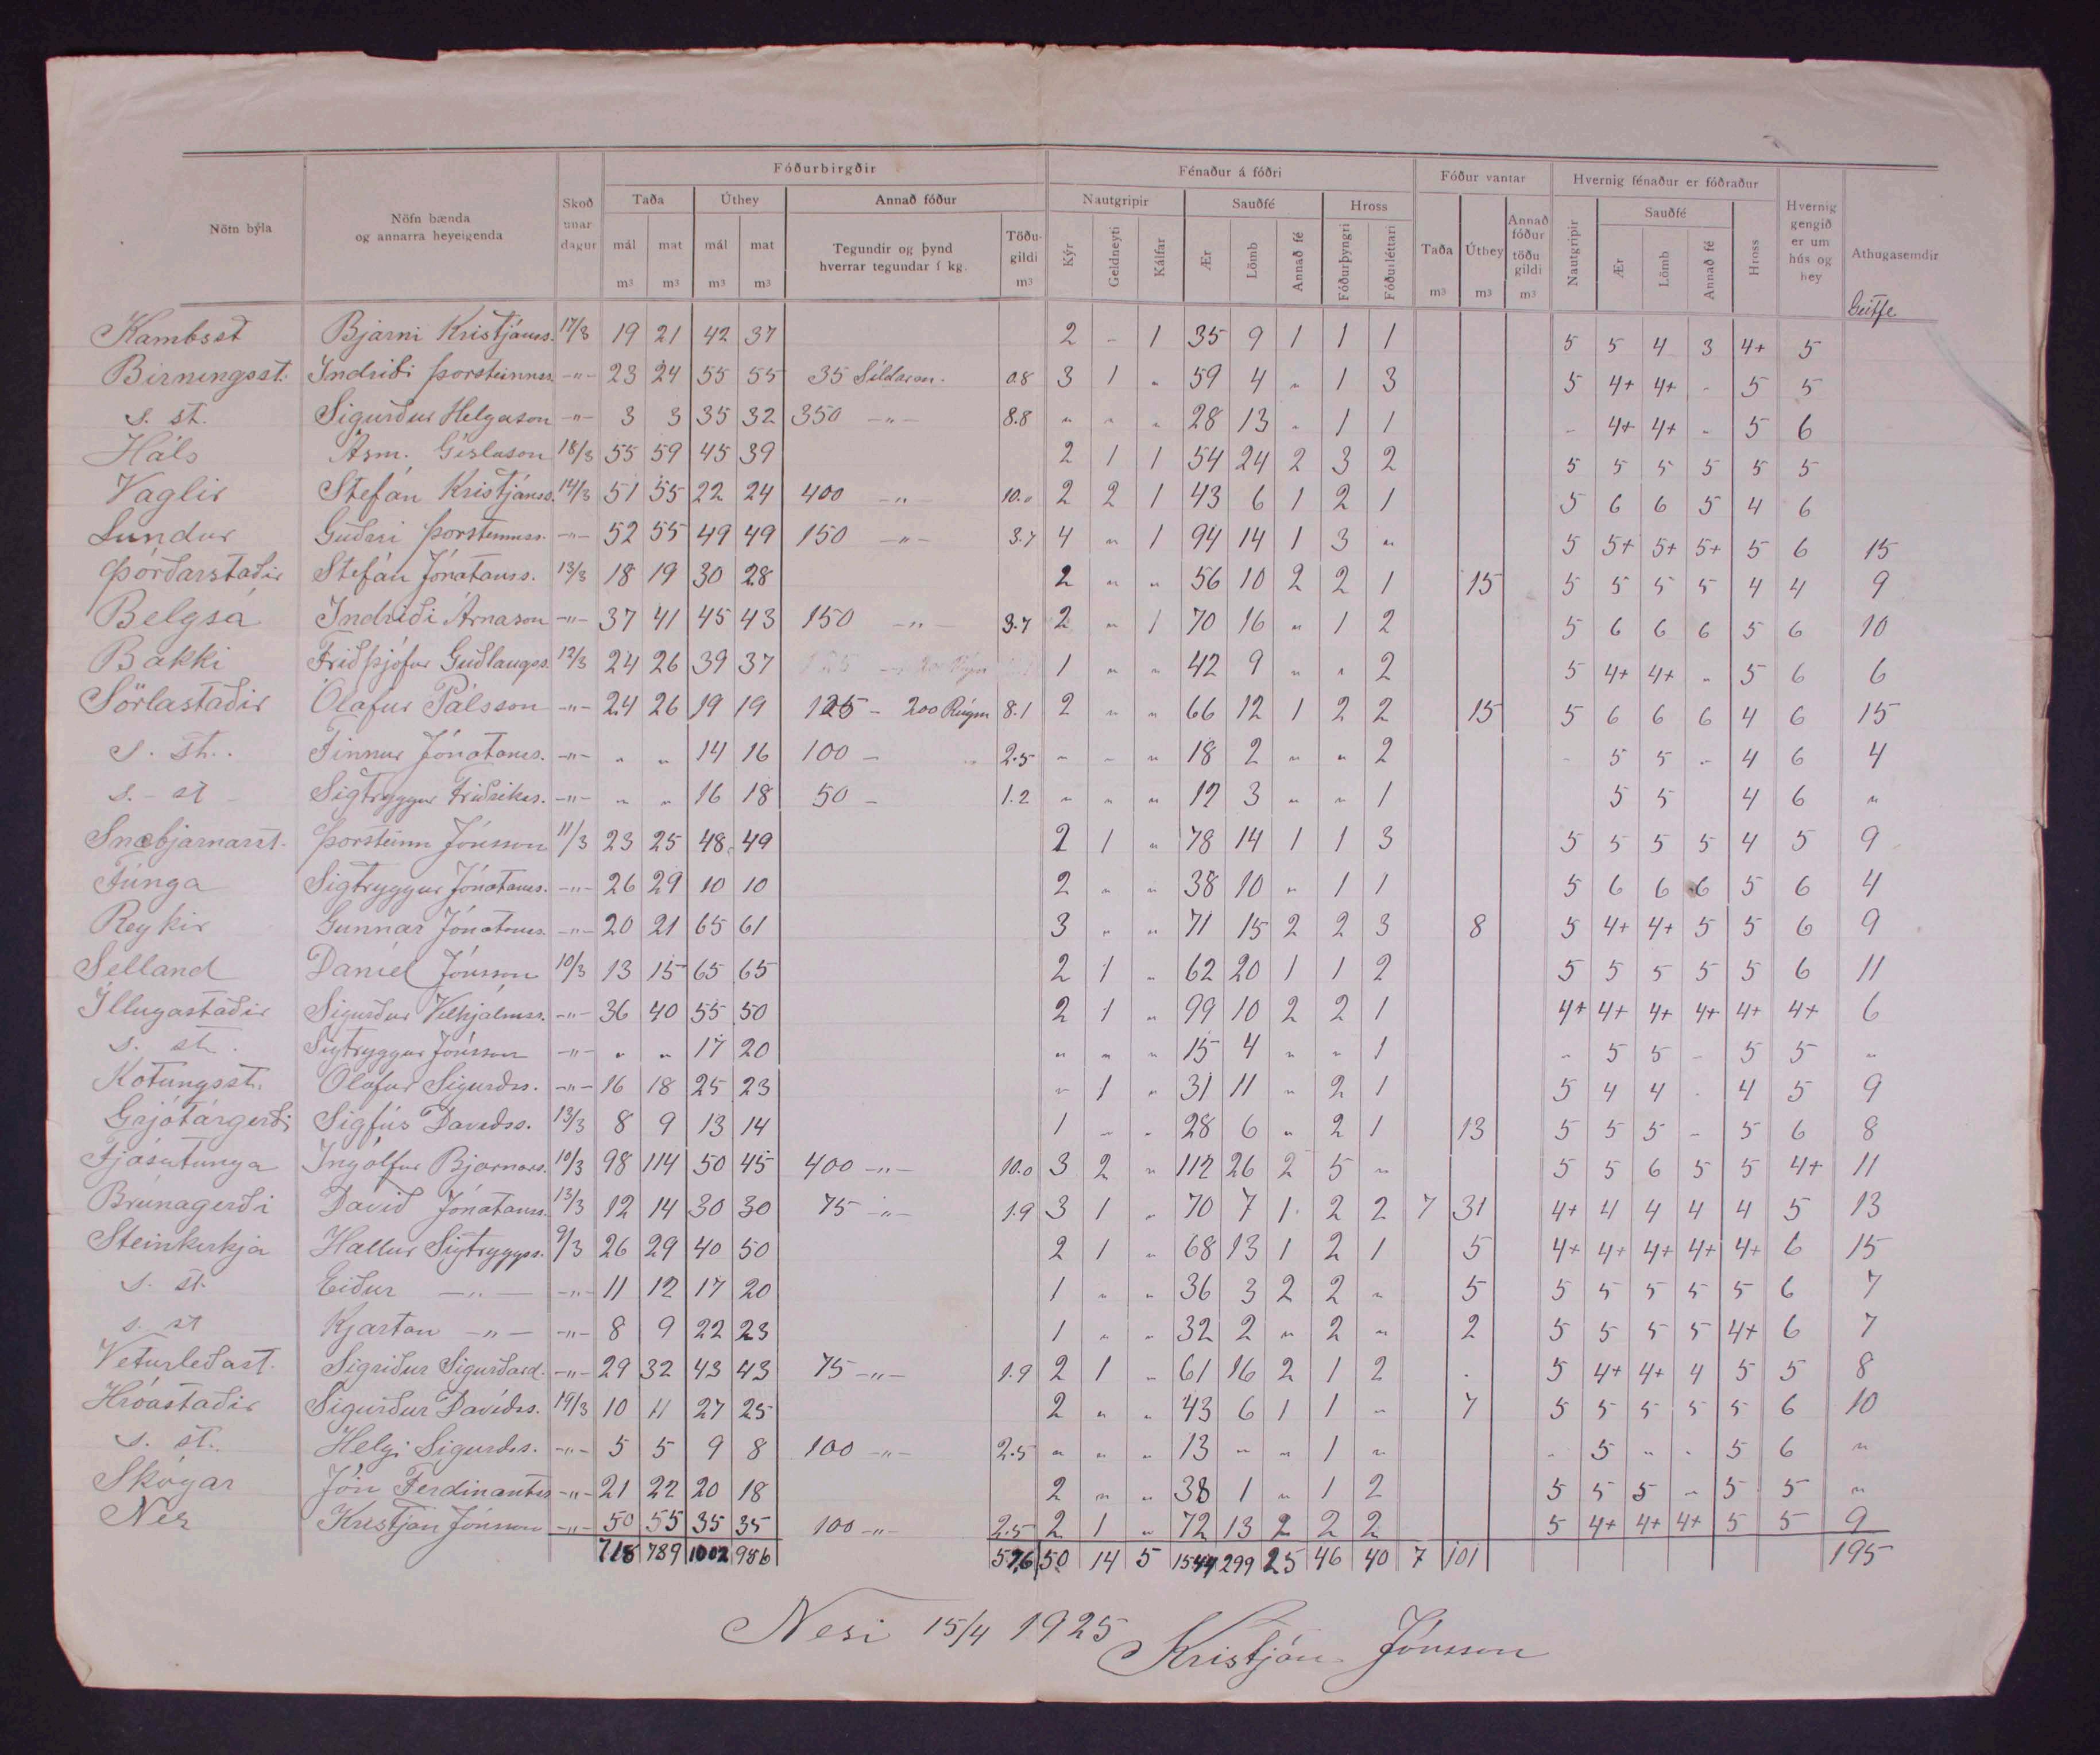 Fóðurbirgðir Fénaður á fóðri Fóður vantar Hvernig fénaður er fóðraður
Nöfn býla Nöfn bænda og annarra heyeigenda Skoðunardagur Taða Úthey Annað fóður Nautgripir Sauðfé Hross Taða Úthey Annað fóður töðugildi Nautgripir Sauðfé Hross Hvernig gengið er um hús og hey Athugasemdir
mál mat mál mat Tegundir og þynd hverrar tegundar í kg. Töðugildi Kýr Geldneyti Kálfar Ær Lömb Annað fé Fóðurþyngri Fóðurléttari Ær Lömb Annað fé
m³ m³ m³ m³ m³ m³ m³ m³
Geitfé
Kambsst Bjarni Kristjánss. 17/3 19 21 42 37 2 - 1 35 9 1 1 1 5 5 4 3 4+ 5
Birningsst. Indriði Þorsteinnss. -"- 23 24 55 55 35 Síldarm. 0.8 3 1 " 59 4 " 1 3 5 4+ 4+ - 5 5
s. st. Sigurður Helgason -"- 3 3 35 32 350 -"- 8.8 " " " 28 13 " 1 1 - 4+ 4+ - 5 6
Háls Ásm. Gíslason 18/3 55 59 45 39 2 1 1 54 24 2 3 2 5 5 5 5 5 5
Vaglir Stefán Kristjánss. 14/3 51 55 22 24 400 -"- 10.0 2 2 1 43 6 1 2 1 5 6 6 5 4 6
Lundur Guðni Þorsteinss. -"- 52 55 49 49 150 -"- 3.7 4 " 1 94 14 1 3 " 5 5+ 5+ 5+ 5 6 15
Þórðarstaðir Stefán Jónatanss. 13/3 18 19 30 28 2 " " 56 10 2 2 1 15 5 5 5 5 4 4 9
Belgsá Indriði Árnason -"- 37 41 45 43 150 -"- 3.7 2 " 1 70 16 " 1 2 5 6 6 6 5 6 10
Bakki Friðþjófur Guðlaugss. 12/3 24 26 39 37 1 " " 42 9 " " 2 5 4+ 4+ " 5 6 6
Sörlastaðir Ólafur Pálsson -"- 24 26 19 19 125 - 200 Rúgm 8.1 2 " " 66 12 1 2 2 15 5 6 6 6 4 6 15
s. st. Finnur Jónatanss. -"- " " 14 16 100 - " 2.5 - - " 18 2 " " 2 - 5 5 - 4 6 4
s. st Sigtryggur Friðrikss. -"- " " 16 18 50 - 1.2 " " " 12 3 " " 1 5 5 4 6 "
Snæbjarnarst. Þorsteinn Jónsson 11/3 23 25 48 49 2 1 " 78 14 1 1 3 5 5 5 5 4 5 9
Túnga Sigtryggur Jónatans. -"- 26 29 10 10 2 " " 38 10 " 1 1 5 6 6 6 5 6 4
Reykir Gunnar Jónatans. -"- 20 21 65 61 3 " " 71 15 2 2 3 8 5 4+ 4+ 5 5 6 9
Selland Daníel Jónsson 10/3 13 15 65 65 2 1 " 62 20 1 1 2 5 5 5 5 5 6 11
Illugastaðir Sigurður Vilhjálmss. -"- 36 40 55 50 2 1 " 99 10 2 2 1 4+ 4+ 4+ 4+ 4+ 4+ 6
s. st. Sigtryggur Jónsson -"- " " 17 20 " " " 15 4 " " 1 - 5 5 - 5 5 "
Kotungsst. Ólafur Sigurðss. -"- 16 18 25 23 " 1 " 31 11 " 2 1 5 4 4 - 4 5 9
Grjótárgerði Sigfús Davíðss. 13/3 8 9 13 14 1 - - 28 6 " 2 1 13 5 5 5 - 5 6 8
Fjósatunga Ingólfur Bjarnars. 10/3 98 114 50 45 400 -"- 10.0 3 2 " 112 26 2 5 " 5 5 6 5 5 4+ 11
Brúnagerði Davíð Jónatanss. 13/3 12 14 30 30 75 -"- 1.9 3 1 " 70 7 1 2 2 7 31 4+ 4 4 4 4 5 13
Steinkirkja Hallur Sigtryggss. 9/3 26 29 40 50 2 1 " 68 13 1 2 1 5 4+ 4+ 4+ 4+ 4+ 6 15
s. st. Eiður -"- -"- 11 12 17 20 1 " " 36 3 2 2 " 5 5 5 5 5 5 6 7
s. st Kjartan -"- -"- 8 9 22 23 1 " " 32 2 " 2 " 2 5 5 5 5 4+ 6 7
Veturleðast. Sigríður Sigurðard. -"- 29 32 43 43 75 -"- 1.9 2 1 " 61 16 2 1 2 5 4+ 4+ 4 5 5 8
Hróastaðir Sigurður Davíðss. 14/3 10 11 27 25 2 " " 43 6 1 1 - 7 5 5 5 5 5 6 10
s. st. Helgi Sigurðss. -"- 5 5 9 8 100 -"- 2.5 " " " 13 " " 1 " - 5 " " 5 6 "
Skógar Jón Ferdinantss -"- 21 22 20 18 2 " " 38 1 " 1 2 5 5 5 " 5 5 "
Nes Kristján Jónsson -"- 50 55 35 35 100 -"- 2.5 2 1 " 72 13 2 2 2 5 4+ 4+ 4+ 5 5 9
718 789 1002 986 57.6 50 14 5 1544 299 25 46 40 7 101 195
Nesi 15/4 1925
Kristján Jónsson